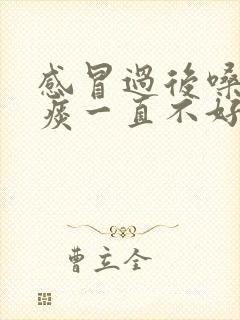 感冒過後嗓
痰一直不好
曹立全